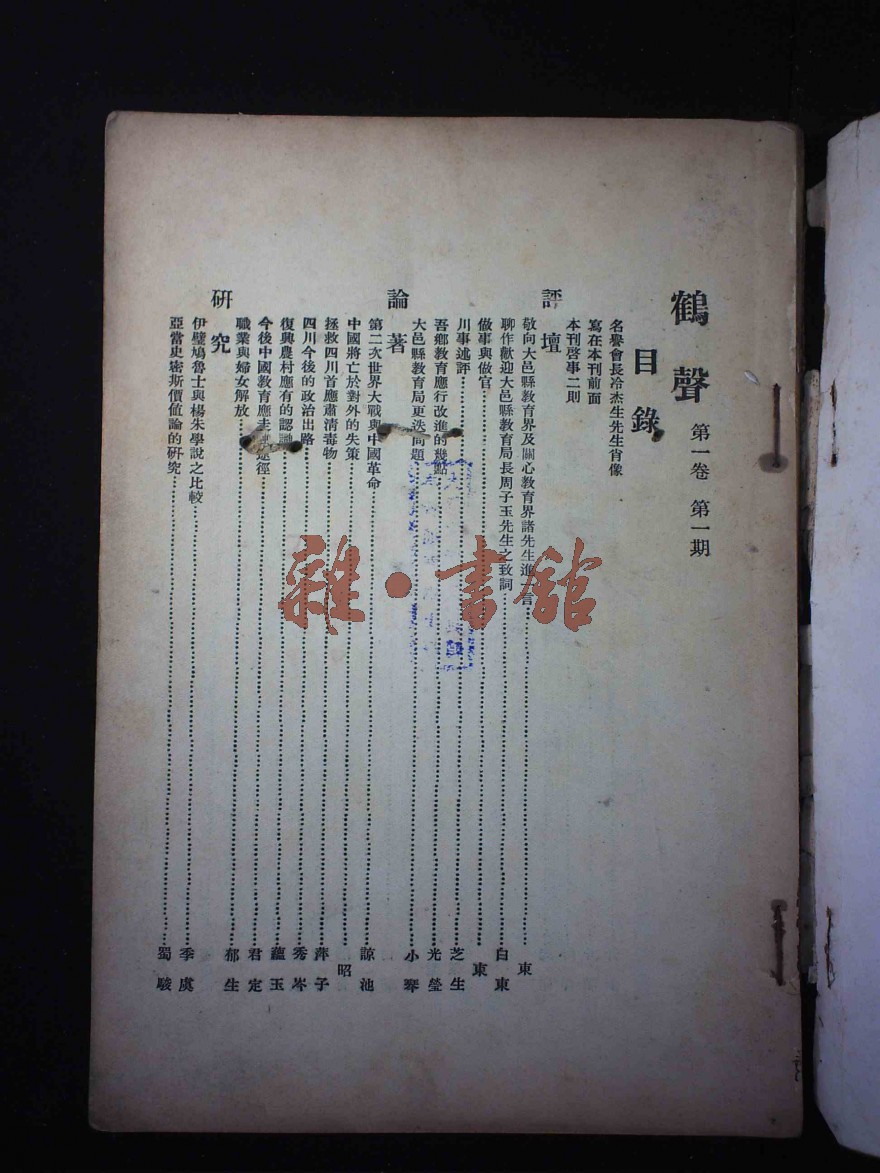 鶴聲 第一卷 第一期
目錄
名譽會長冷杰生先生肖像
寫在本刊前面
本刊啓事二則
評壇
敬向大邑縣教育界及關心教育界諸先生進一言 東
聊作歡迎大邑縣教育局長周子玉先生之致詞 白東
做事與做官 東
川事述評 芝生
吾鄉教育應行改進的幾點 光瑩
大邑縣教育局更迭問題 小琴
論著
第二次世界大戰與中國革命 諒池
中國將亡於對外的失策 昭
拯救四川首應肅清毒物 萍子
四川今後的政治出路 秀岑
復興農村應有的認識 蘊玉
今後中國教育應走 途徑 君定
職業與婦女解放 郁生
研究
伊壁鳩魯士與楊朱學說之比較 季虞
亞當史密斯價值論的研究 蜀駿
雜·書館